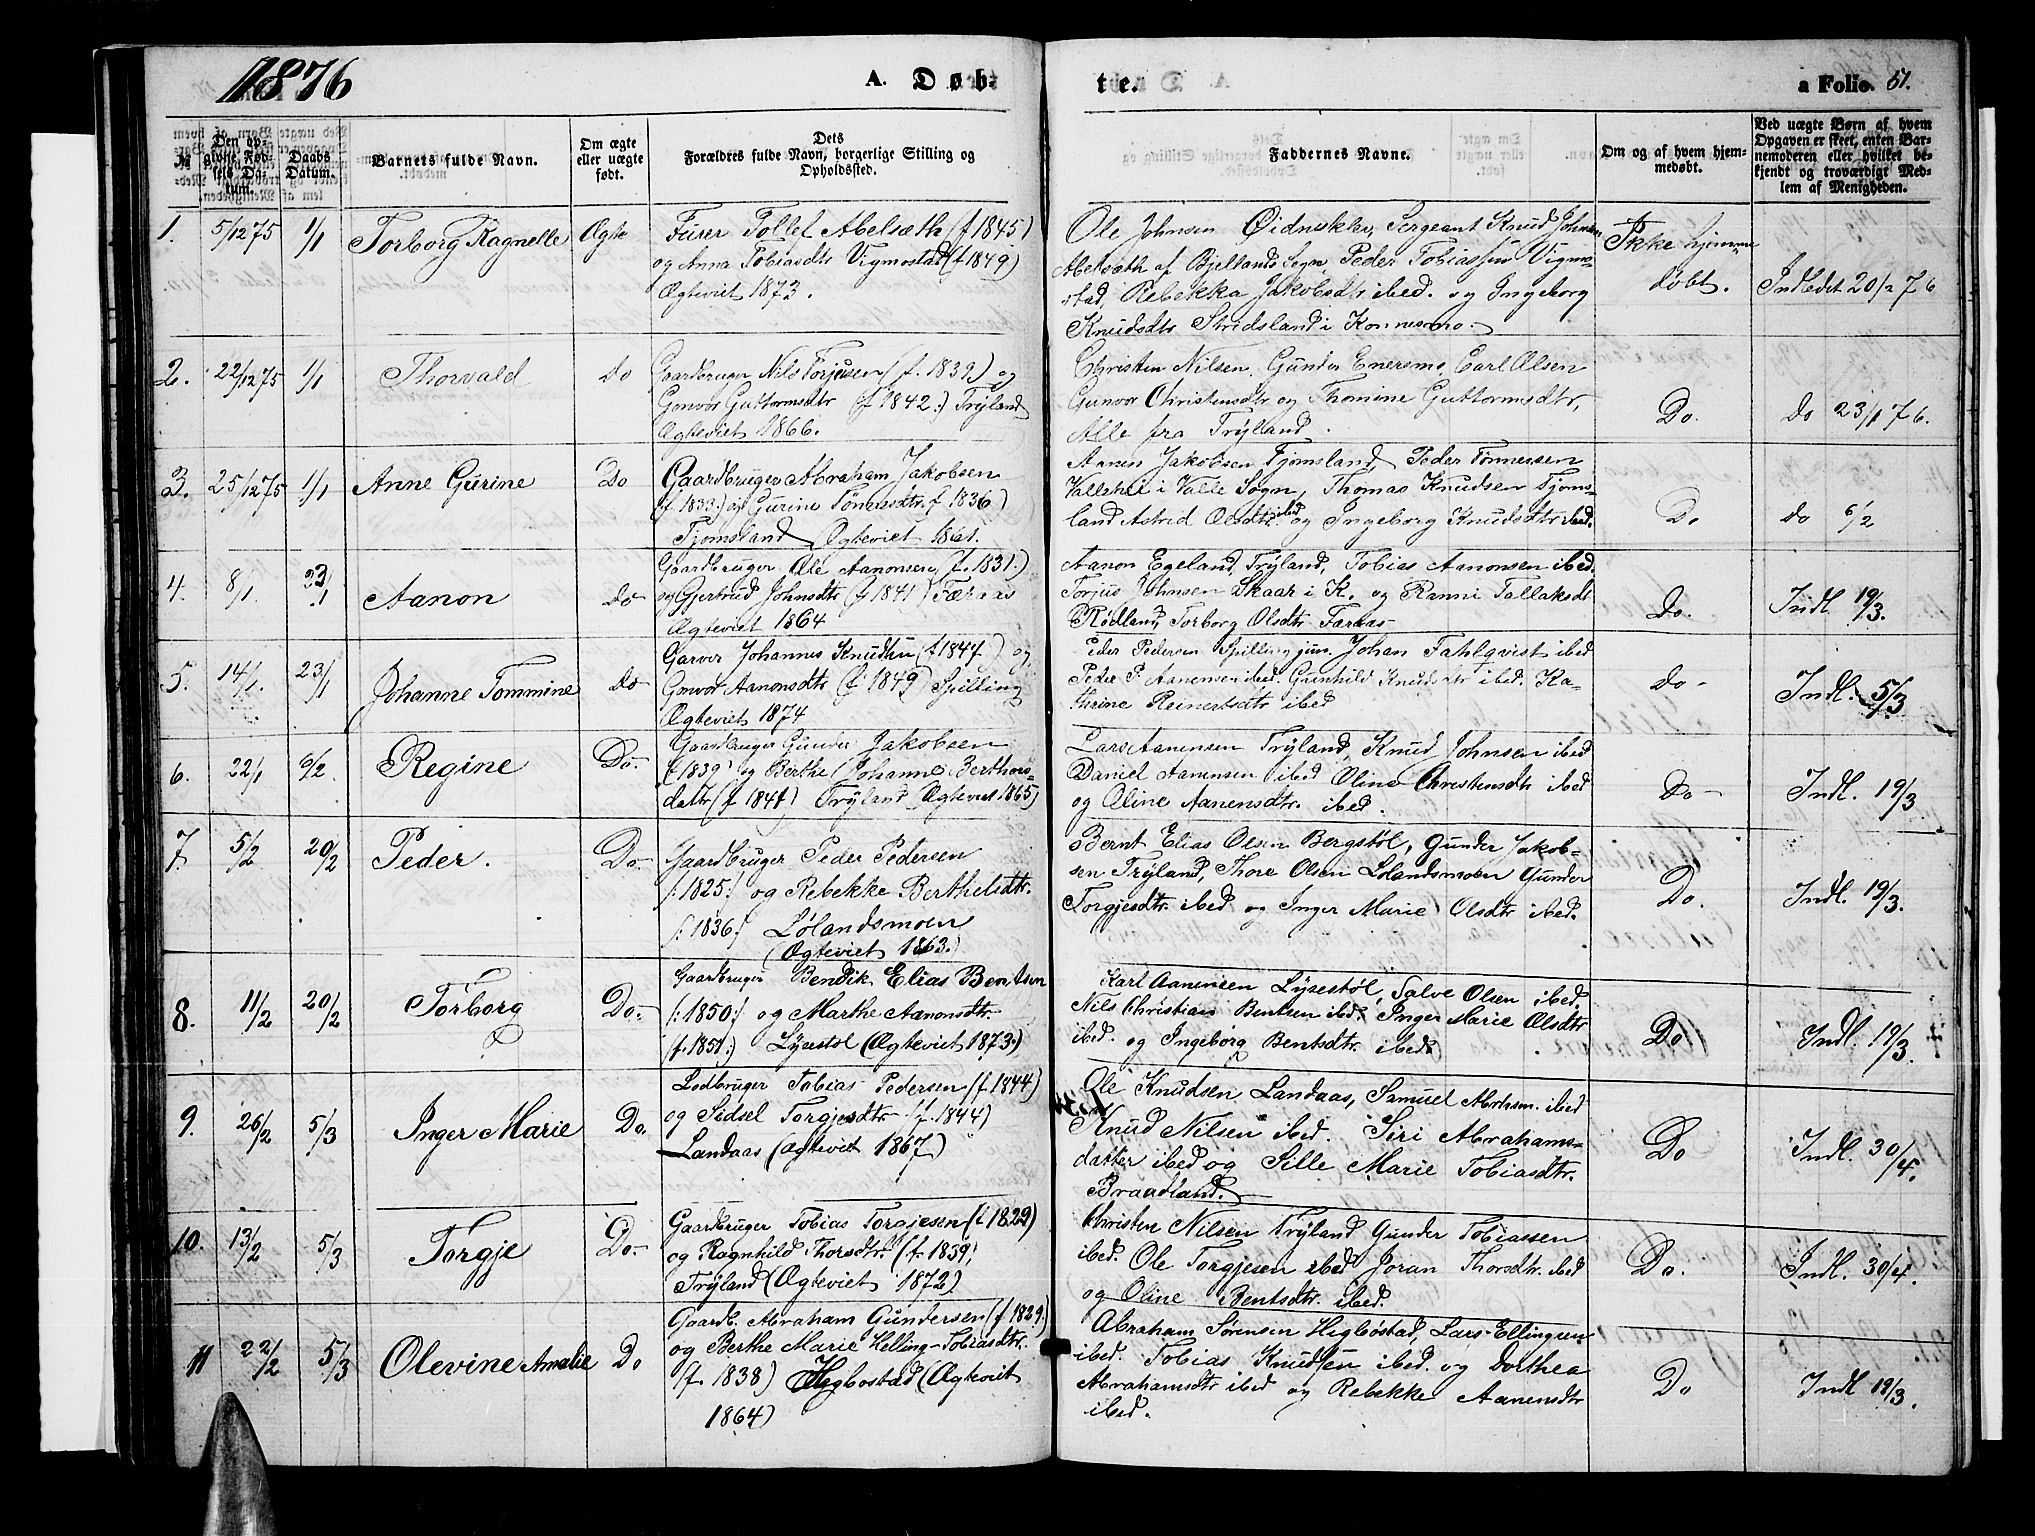 1876
A. Døb-
te.
a Folio. 51.
№
Den op-
givne Fød-
sels Da-
tum.
Daabs
Datum.
Barnets fulde Navn.
Om ægte
eller uægte
født.
Dets
Forældres fulde Navn, borgerlige Stilling og
Opholdssted.
Faddernes Navne.
Om og af hvem hjem-
medøbt.
Ved uægte Børn af hvem
Opgaven er skeet, enten Bar-
nemoderen eller hvilket be-
kjendt og troværdigt Med-
lem af Menigheden.
1. 5/12 75 1/1 Torborg Ragnelle Ægte
Furer Tollef Abelsæth (f 1845)
og Anna Tobiasdtr Vigmostad (f 1849)
Ægteviet 1873.
Ole Johnsen Øidneskler, Sergeant Knud Johnsen
Abelsæth af Bjellands Sogn, Peder Tobiassen Vigmo-
stad, Rebekka Jakobsdtr ibed. og Ingeborg
Knudsdtr Stridsland i Konnesmo.
Ikke hjemme
døbt.
Indledet 20/2 76
2. 22/12 75 1/1 Thorvald Do
Gaardbruger Nils Torjesen (f. 1839) og
Gonvor Guttormsdtr (f 1842:) Trÿland
Ægteviet 1866.
Christen Nilsen, Gunder Enersmo, Carl Olsen
Gunvor Christensdtr og Thomine Guttormsdtr,
Alle fra Trÿland.
Do.
Do 23/1 76.
3. 25/12 75 1/1 Anne Gurine Do
Gaardbruger Abraham Jakobsen
(f. 1833:) og Gurine Tønnesdtr. f 1836)
Fjomsland Ægteviet 1861.
Aanen Jakobsen Fjomsland, Peder Tønnessen
Vallehei i Valle Sogn, Thomas Knudsen Fjoms-
land Astrid Olsdtr ibed og Ingeborg Knudsdtr ibed.
Do
Do 6/2
4. 8/1 23/1 Aanon Do
Gaardbruger Ole Aanonsen (f. 1831.)
og Gjertrud Johnsdtr (f 1841) Færaas
Ægteviet 1864
Aanon Egeland, Trÿland, Tobias Aanonsen ibed.
Torjus Johnsen Skaar i K. og Ranni Tallaksdt
Rødland, Torborg Olsdtr Færaas
Do.
Indl. 19/3.
5. 14/1. 23/1 Johanne Tommine Do
Garver Johannes Knudsen (f 1847) og
Gonvor Aanonsdtr (f. 1849) Spilling
Ægteviet 1874
Peder Pedersen Spilling jun. Johan Fahlqvist ibed
Peder P. Aanensen ibed Gunhild Knudsdtr ibed. Ka-
thrine Reinertsdtr ibed
Do
Indl. 5/3
6. 22/1 6/2. Regine Do.
Gaardbruger Gunder Jakobsen
(f 1839) og Berthe Johanne Berthors-
datter (f. 1841) Trÿland (Ægteviet 1865)
Lars Aanensen Trÿland, Knud Johnsen ibed
Daniel Aanensen ibed Oline Christensdtr ibed
og Oline Aanensdtr. ibed.
Do
Indl. 19/3
7. 5/2 20/2 Peder. Do.
Gaardbruger Peder Pedersen
/: 1825:/ og Rebekke Berthelsdtr.
/: 1836:/ Lølandsmoen
(Ægteviet 1863.)
Bernt Elias Olsen Bergstøl, Gunder Jakob-
sen Trÿland, Thore Olsen Lølandsmoen Gunder
Torgjesdtr. ibed og Inger Marie Olsdtr ibed.
Do.
Indl. 19/3.
8. 11/2 20/2 Torborg Do.
Gaardbruger Bendik Elias Bentsen
/: 1850:/ og Marthe Aanonsdtr.
(f. 1851:) Lÿsestøl (Ægteviet 1873.)
Karl Aanensen Lÿsestøl, Salve Olsen ibed.
Nils Christian Bentsen ibed. Inger Marie Olsdtr
ibed. og Ingeborg Bentsdtr. ibed.
Do
Indl. 19/3.
9. 26/2 5/3 Inger Marie Do.
Lodbruger Tobias Pedersen (f. 1844)
og Sidsel Torgjesdtr (f. 1844)
Landaas (Ægteviet 1867)
Ole Knudsen Landaas, Samuel Abrham. ibed
Knud Nilsen ibed. Siri Abrahams-
datter ibed og Sille Marie Tobiasdtr.
Braadland.
Do
Indl. 30/4.
10. 13/2 5/3 Torgje Do.
Gaardbruger Tobias Torgjesen (f 1829)
og Ragnhild Thorsdtr. (f. 1839)
Trÿland (Ægteviet 1872)
Christen Nilsen Trÿland Gunder Tobiassen
ibed. Ole Torgjesen ibed Joran Thorsdtr. ibed
og Oline Bentsdtr. ibed.
Do.
Indl. 30/4.
11 22/2 5/3 Olevine Amalie Do
Gaardb. Abraham Gundersen (f 1829)
og Berthe Marie Helling-Tobiasdtr.
(f. 1838) Høgbostad (Ægteviet
1864)
Abraham Sørensen Høgbøstad, Lars Ellingsen
ibed. Tobias Knudsen ibed. og Dorthea
Abrahamsdtr ibed og Rebekke Aanensdtr
ibed.
Do
Indl 19/3.